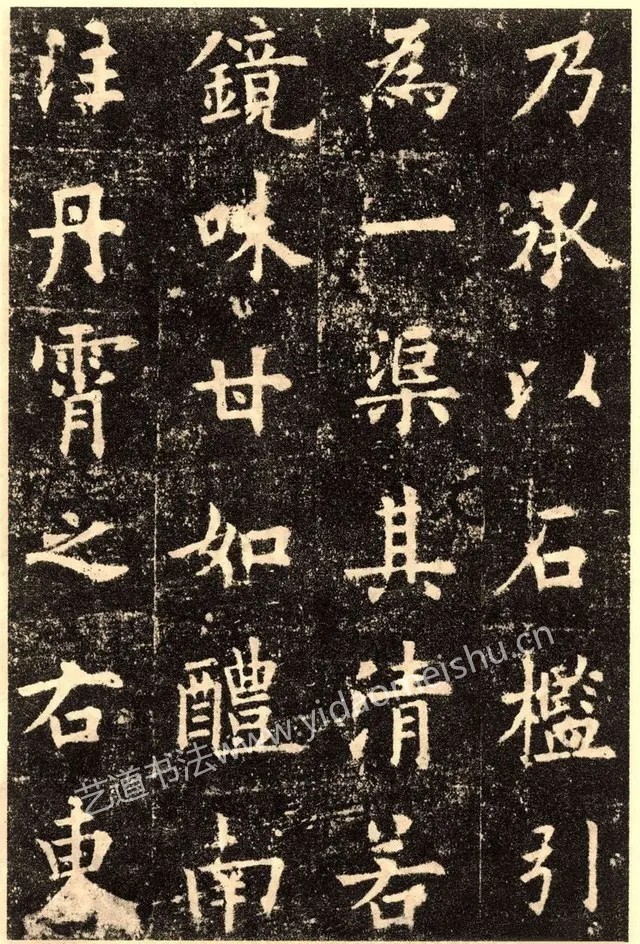 乃承以石檻引
為一渠其清若
鏡味甘如醴南
注丹霄之右東
艺道书法www.yidaomeishu.cn